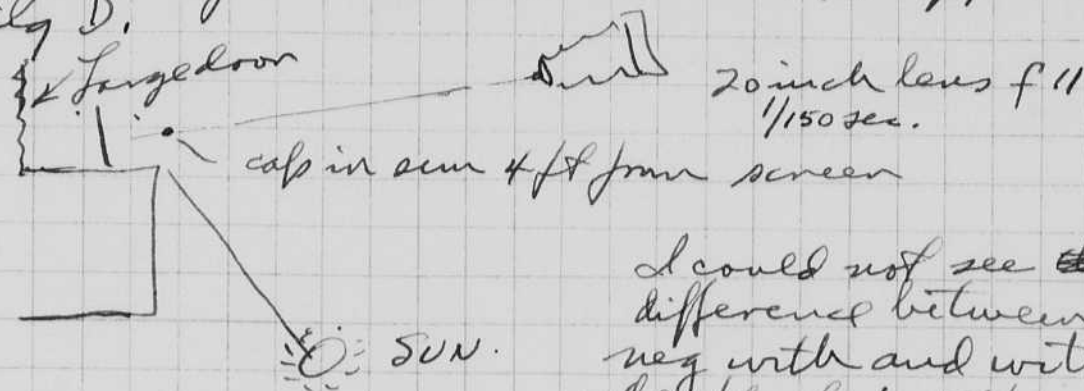 D.
Large door
20 inch lens f 11
1/150 sec.
cap in sun 4 ft from screen
I could not see
difference between
SUN.
neg with and wit